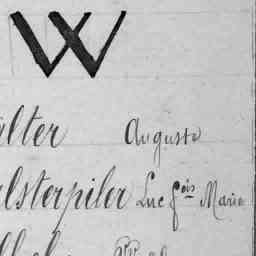 W
alter Auguste
alsterpiler Luc fois Marie